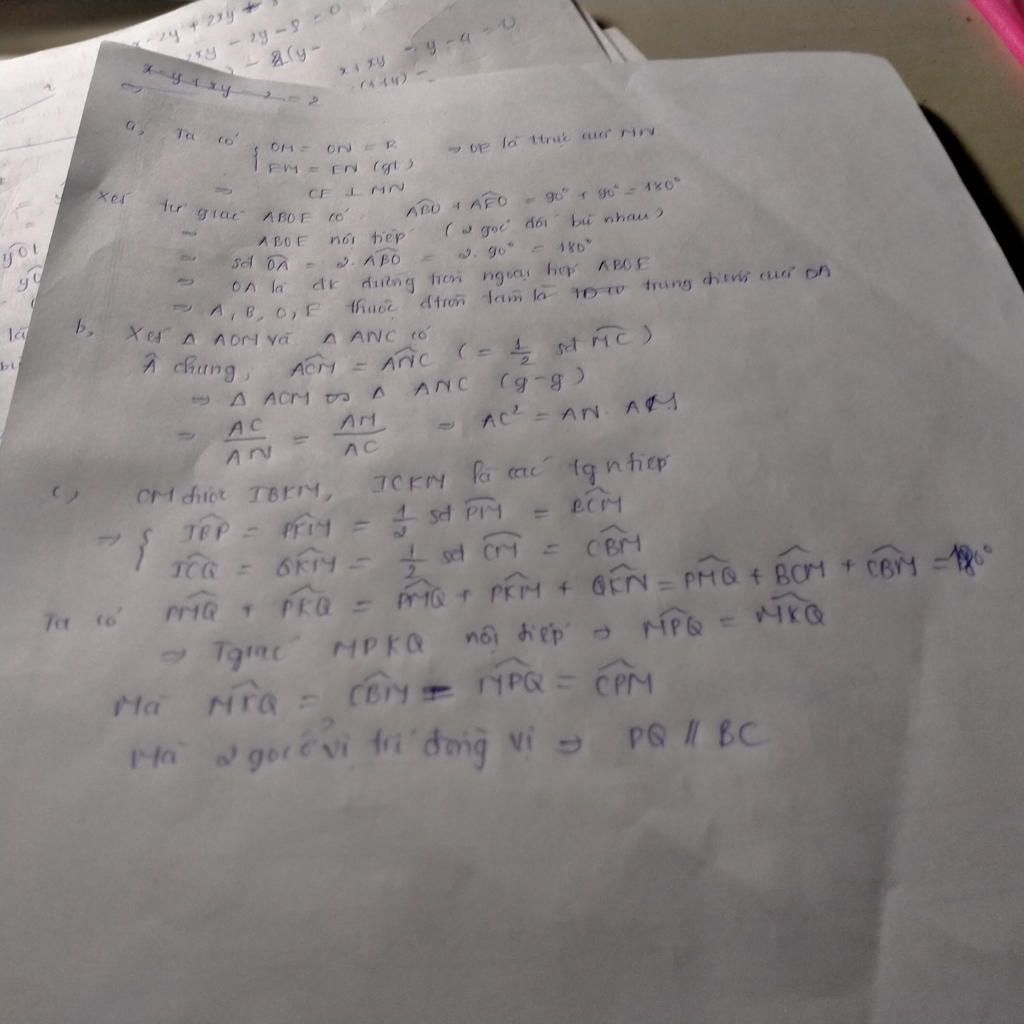 x - 2y + 2xy
2xy - 2y - 8 = 0
x + xy - y - 4 = 0
x - y + xy = 2
a, Ta có { OM = ON = R ⇒ OE là ttrực của MN
EM = EN (gt)
⇒ OE ⊥ MN
Xét tứ giác ABOE có \widehat{ABO} + \widehat{AEO} = 90° + 90° = 180°
⇒ ABOE nội tiếp (2 góc đối bù nhau)
⇒ sđ \widehat{OA} = 2. \widehat{ABO} = 2. 90° = 180°
⇒ OA là đk đường tròn ngoại tiếp ABOE
⇒ A, B, O, E thuộc đtròn tâm là trung điểm của OA
b, Xét Δ ACM và Δ ANC có
Â chung, \widehat{ACM} = \widehat{ANC} ( = \frac{1}{2} sđ \widehat{MC} )
⇒ Δ ACM ∽ Δ ANC (g-g)
⇒ \frac{AC}{AN} = \frac{AM}{AC} ⇒ AC² = AN. AM
c, CM được IBKM, ICKM là các tg ntiếp
⇒ { \widehat{IBP} = \widehat{PKM} = \frac{1}{2} sđ \widehat{PM} = \widehat{BCM}
\widehat{ICQ} = \widehat{QKM} = \frac{1}{2} sđ \widehat{CM} = \widehat{CBM}
Ta có \widehat{PMQ} + \widehat{PKQ} = \widehat{PMQ} + \widehat{PKM} + \widehat{QKN} = \widehat{PMQ} + \widehat{BCM} + \widehat{CBM} = 180°
⇒ Tgiác MPKQ nội tiếp ⇒ \widehat{MPQ} = \widehat{MKQ}
Mà \widehat{MKQ} = \widehat{CBM} = \widehat{MPQ} = \widehat{CPM}
Mà 2 góc ở vị trí đồng vị ⇒ PQ // BC